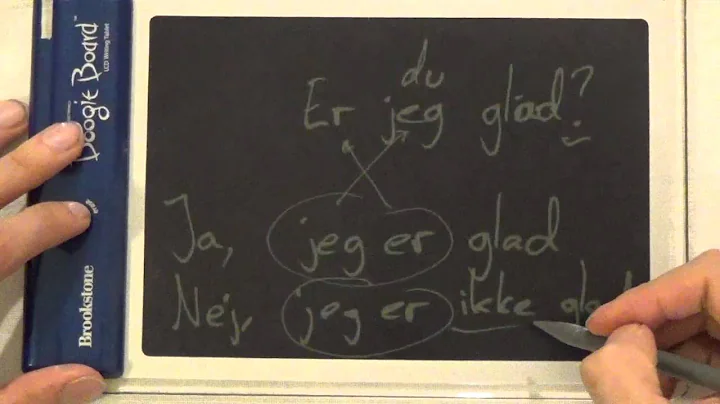 Boogie Board™
LCD Writing Tablet
Brookstone
du
Er jeg glad?
Ja, jeg er glad
Nej, jeg er ikke glad